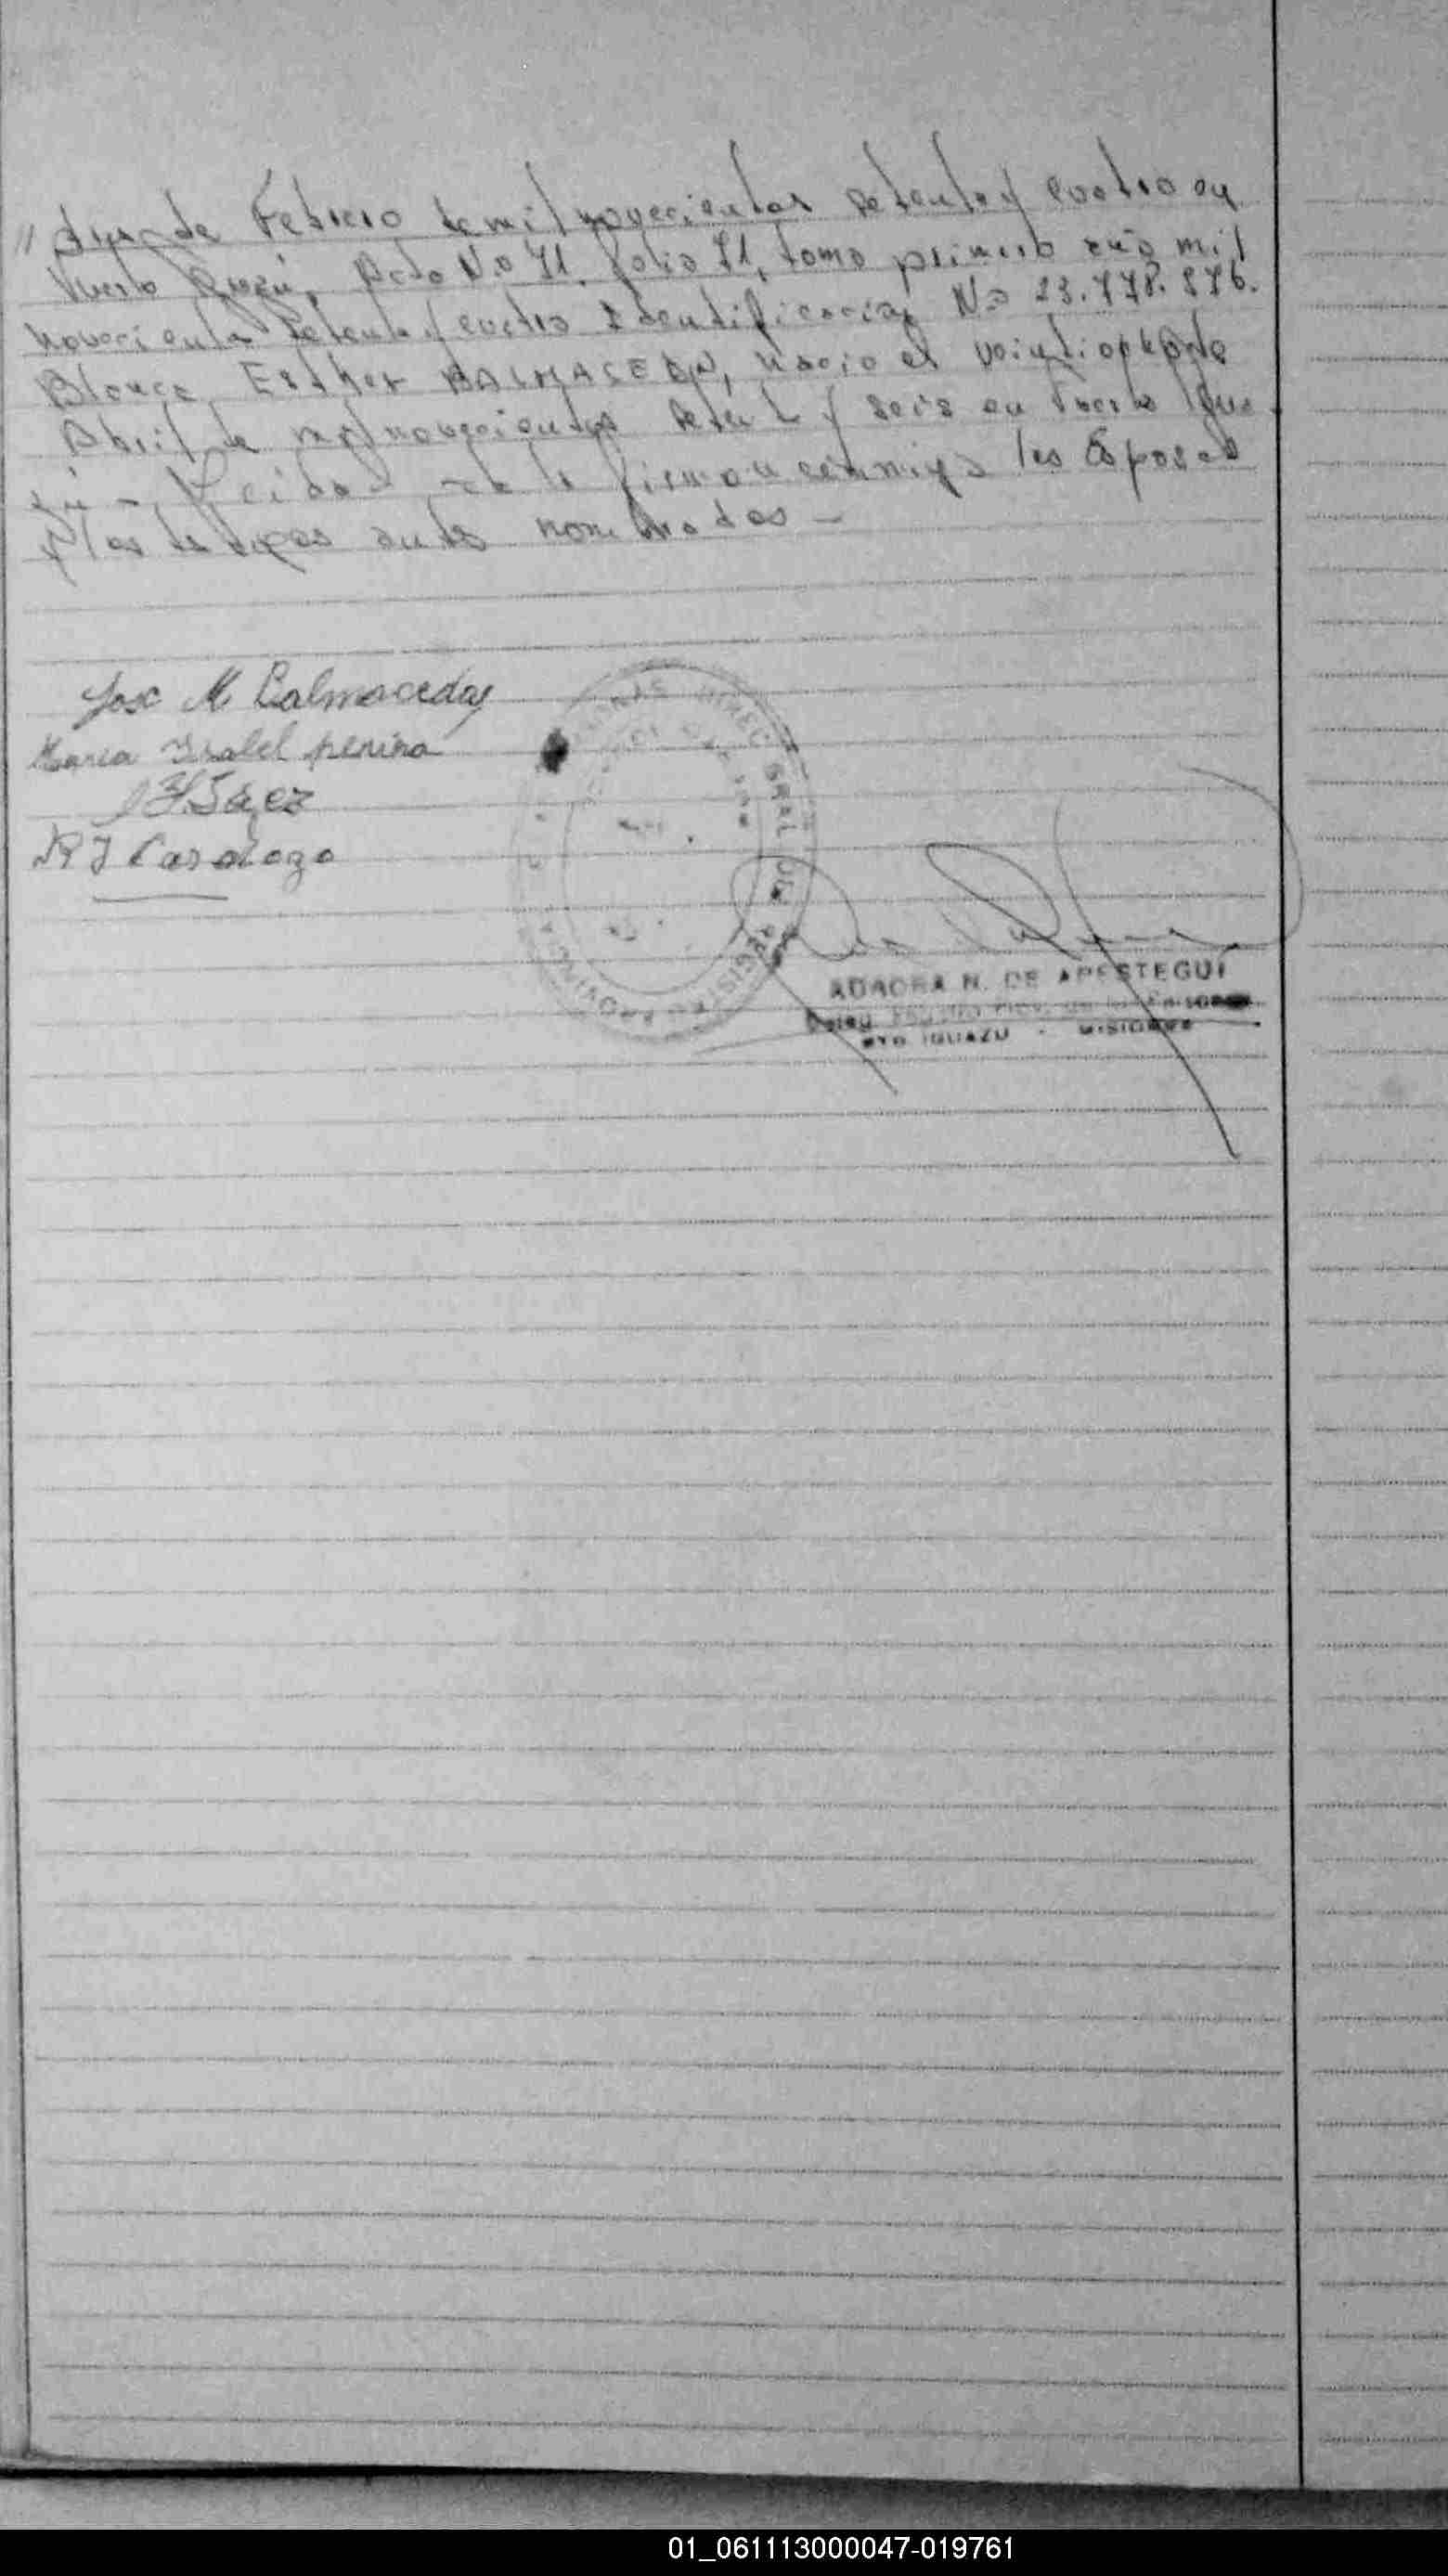 // de Febrero de mil novecientos setenta y cuatro en
Puerto Iguazú, Acta No 71, folio 71, tomo primero año mil
novecientos setenta y cuatro Identificación No 23.778.
Blanca Esther BALMACEDA, nacio el veintiocho de
Abril de mil novecientos setenta y seis en Puerto Igua
zú - Leida la firman conmigo los Esposos
y los testigos antes nombrados -
Jose M Balmaceda
Maria Isabel pereira
Saez
Cardozo
ADADRA N. DE APESTEGUI
PTO. IGUAZU - MISIONES
DIREC. GRAL. DEL REGISTRO PROVINCIAL
01_061113000047-019761